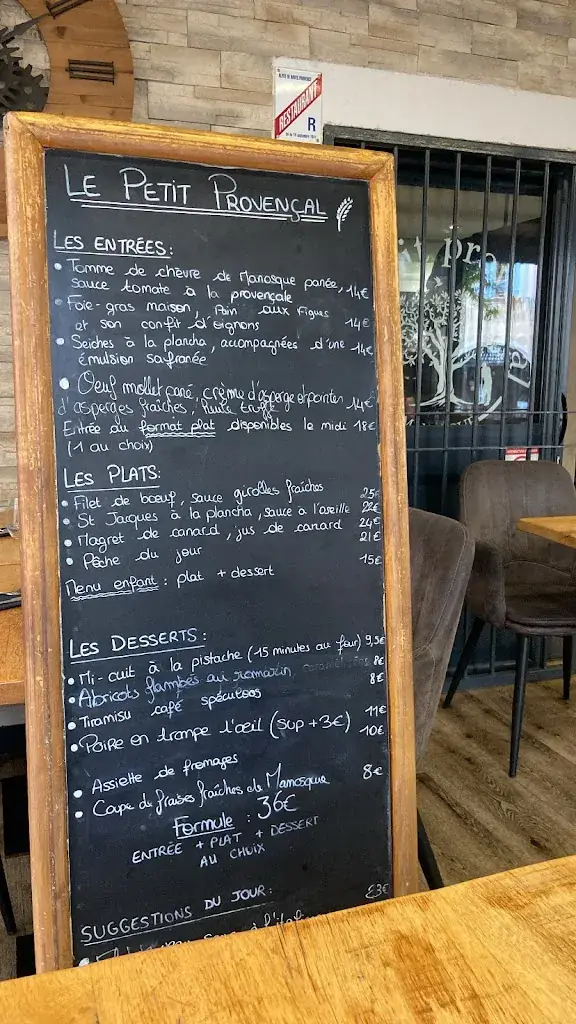 RESTAURANT
R
LE PETIT PROVENÇAL
LES ENTRÉES:
• Tomme de chèvre de Manosque panée,
sauce tomate à la provençale 14€
• Foie-gras maison, Pain aux Figues
et son confit d'oignons 14€
• Seiches à la plancha, accompagnées d'une
émulsion safranée 14€
• Oeuf mollet pané, crème d'asperge et pointes
d'asperges fraîches, huile truffe 14€
Entrée au format plat disponibles le midi 18€
(1 au choix)
LES PLATS:
• Filet de boeuf, sauce girolles fraîches 25€
• St Jacques à la plancha, sauce à l'oseille 22€
• Magret de canard, jus de canard 24€
• Pêche du jour 21€
Menu enfant: plat + dessert 15€
LES DESSERTS:
• Mi-cuit à la pistache (15 minutes au four) 9,5€
• Abricots flambés au romarin, 8€
• Tiramisu café spéculoos 8€
• Poire en trompe l'oeil (sup +3€) 11€
• Assiette de fromages 10€
• Coupe de fraises fraîches de Manosque 8€
Formule: 36€
ENTRÉE + PLAT + DESSERT
AU CHOIX
SUGGESTIONS DU JOUR: 23€